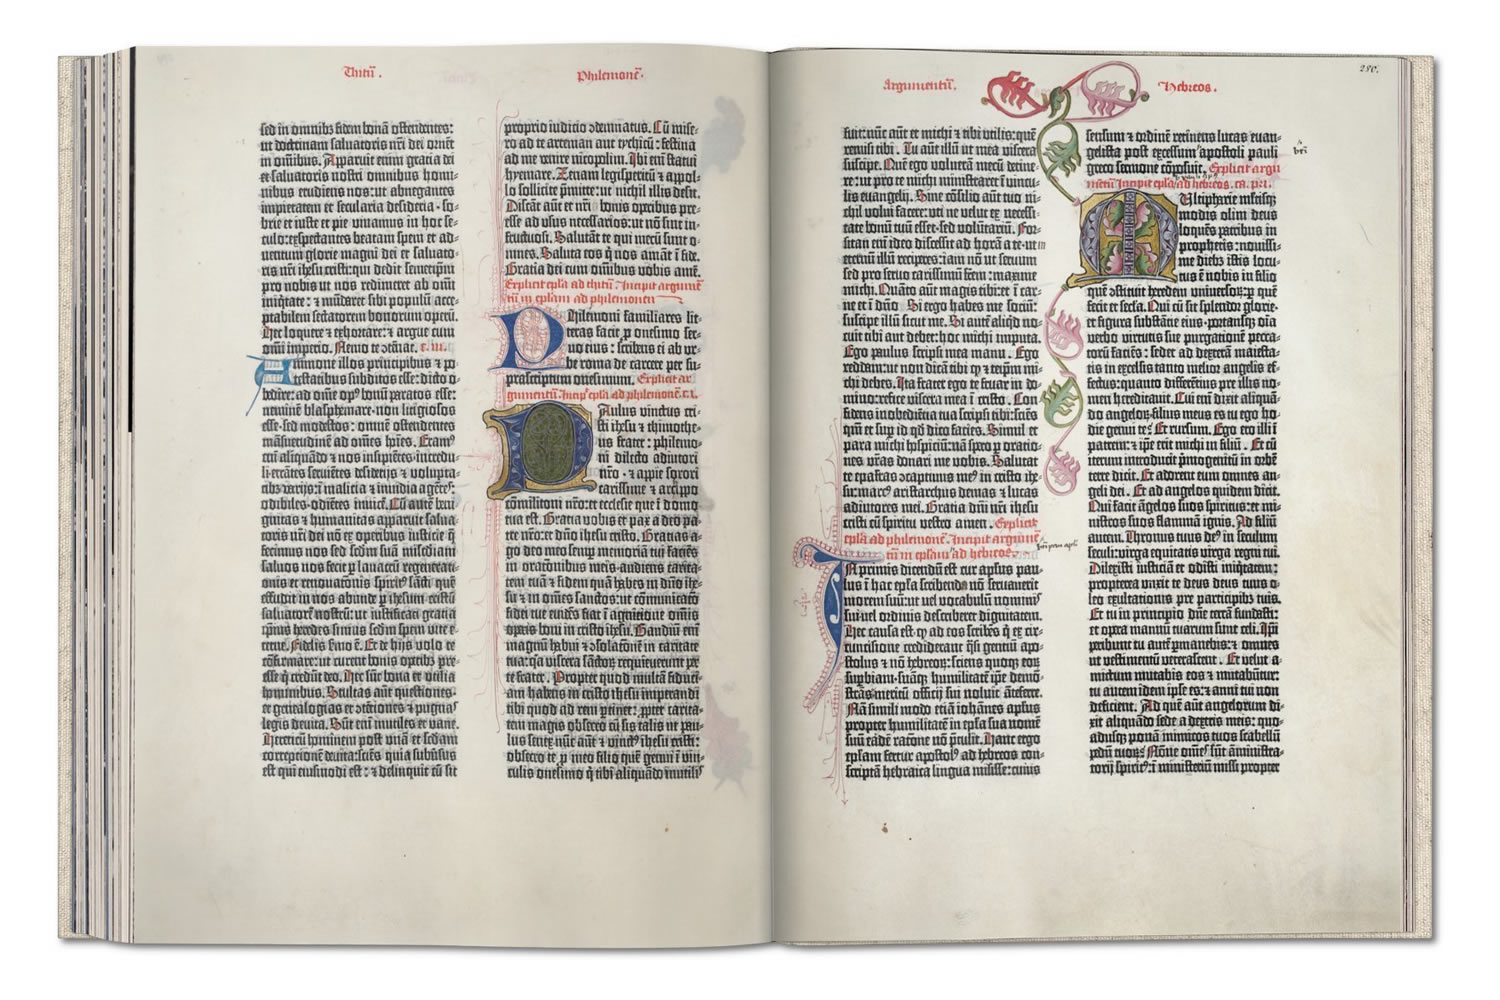 Thitū.
Philemonē.
sed in omnibꝫ fidem bonā ostendentes:
ut doctrinam saluatoris nr̄i dei ornēt
in om̄ibus. Apparuit enim gratia dei
et saluatoris nostri omnibus homi-
nibus erudiens nos: ut abnegantes
impietatem et secularia desideria · so-
brie et iuste et pie viuamus in hoc se-
culo: expectantes beatam spem et ad-
uentum glorie magni dei et saluato-
ris nr̄i ihesu cristi: qui dedit semetip̄m
pro nobis ut nos redimeret ab om̄i
iniq̄tate: ⁊ mūdaret sibi populū acce-
ptabilem sectatorem bonorum operū.
Hec loquere et exhortare: ⁊ argue cum
om̄i imperio. Nemo te ↄtēnat. c. iii.
Ammone illos principibus ⁊ po-
testatibus subditos esse: dicto o-
bedire: ad om̄e opꝰ bonū paratos esse:
neminē blasphemare · non litigiosos
esse · sed modestos: omnē ostendentes
mansuetudinē ad om̄es hoīes. Eramꝰ
em̄ aliquādo ⁊ nos insipiētes · incredu-
li · errātes · seruiētes desiderijs ⁊ volupta-
tibꝫ varijs: ī malicia ⁊ inuidia agētes:
odibiles · odiētes inuicē. Cū autē beni-
gnitas ⁊ humanitas apparuit salua-
toris nr̄i dei: nō ex operibus iusticie q̄
fecimus nos sed scd̄m suā mīsediam
saluos nos fecit p lauacrū regenerati-
onis et renouacōnis spiritꝰ sācti quē
effudit in nos abunde p ihesum cristū
saluatorē nostrū: ut iustificati gratia
ip̄ius heredes simus scdm spem vite e-
terne. Fidelis sermo ē. Et de hijs volo te
cōfirmare: ut curent bonis operibꝫ pre-
esse q̄ credūt deo. Hec sūt bona et vtilia
hominibus. Stultas aūt questiones
et genealogias et ↄtētiones ⁊ pugnas
legis deuita. Sūt em̄ inutiles et vane.
Hereticū hominem post vnā et sedam
correptionē deuita: sciēs quia subuersus
est qui eiusmodi est: ⁊ delinquit cū sit
proprio iudicio ↄdemnatus. Cū mise-
ro ad te arteman aut tychicū: festina
ad me venire nicopolim. Ibi em̄ statui
hyemare. Zenam legisperitū ⁊ appol-
lo sollicite p̄mitte: ut nichil illis desit.
Discāt aūt et nr̄i bonis operibus pre-
esse ad vsus necessarios: ut nō sint in-
fructuosi. Salutāt te qui mecū sunt o-
mnes. Saluta eos q̄ nos amāt ī fide.
Gratia dei cum om̄ibus vobis amē.
Explicit epl̄a ad thitū. Incipit argumē
tū in epl̄am ad philemonem
Philemoni familiares lit-
teras facit p onesimo ser-
uo eius: scribens ei ab ur-
be roma de carcere per su-
prascriptum onesimum. Explicit ar-
gumentū. Incipꝰ epl̄a ad philemonē. c. i.
Paulus vinctus cri-
sti ihesu ⁊ thimothe-
us frater: philemo-
ni dilecto adiutori
nr̄o · ⁊ appie sorori
carissime ⁊ archippo
cōmilitoni nr̄o: et ecclesie que ī domo
tua est. Gratia vobis et pax a deo pa-
tre nr̄o: et dn̄o ihesu cristo. Gratias a-
go deo meo semp memoriā tui faciēs
in oraconibus meis · audiens carita-
tem tuā ⁊ fidem quā habes in dn̄o ihe-
su ⁊ in omēs sanctos: ut cōmunicatō
fidei tue euidēs fiat ī agnicione om̄is
operis boni in cristo ihesu. Gaudiū em̄
magnū habui ⁊ ↄsolacōnē in caritate
tua: q̄a viscera sāctoꝝ requieuerunt per
te frater. Propter quod multam fiduci-
am habens in cristo ihesu imperandi
tibi quod ad rem ptinet: ꝓpter caritatē
tem magis obsecro cū sis talis ut pau-
lus senex · nūc aūt ⁊ vinctꝰ ihesu cristi:
obsecro te p meo filio quē genui ī vin-
culis onesimo q̄ tibi aliquādo inutilis
Argumentū.
Hebreos.
280.
fuit: nūc aūt et michi ⁊ tibi vtilis: quē
remisi tibi. Tu aūt illū ut mea viscera
suscipe. Quē ego volueram mecū detine-
re: ut pro te michi ministraret ī vincu-
lis euangelij. Sine cōsilio aūt tuo ni-
chil volui facere: vti ne velut ex necessi-
tate bonū tuū esset · sed volūtariū. For-
sitan em̄ ideo discessit ad horā a te · ut in
eternum illū reciperes: iam nō ut seruum
sed pro seruo carissimū frēm: maxime
michi. Quāto aūt magis tibi: et ī car-
ne et ī dn̄o. Si ergo habes me sociū:
suscipe illū sicut me. Si autē aliqd no-
cuit tibi aut debet: hoc michi imputa.
Ego paulus scripsi mea manu. Ego
reddam: ut non dicā tibi q̄ ⁊ teip̄m mi-
chi debes. Ita frater ego te fruar in do-
mino: refice viscera mea ī cristo. Con-
fidens in obediētia tua scripsi tibi: sciēs
qm̄ et sup id qd dico facies. Simul et
para michi hospiciū: nā spero p oratio-
nes vr̄as donari me vobis. Salutat
te epafras ↄcaptiuus meꝰ in cristo ihe-
su: marcꝰ aristarchus demas ⁊ lucas
adiutores mei. Gratia dn̄i nr̄i ihesu
cristi cū spiritu vestro amen. Explicit
epl̄a ad philemonē. Incipit argumē
tū in epl̄am ad hebreos.
In primis dicendū est cur apl̄us pau-
lus ī hac epl̄a scribendo nō seruauerit
morem suū: ut vel vocabulū nominis
sui vel ordinis describeret dignitatem.
Hec causa est · q̄ ad eos scribēs q̄ ex cir-
cumcisione crediderant q̄si gentiū apo-
stolus ⁊ nō hebreoꝝ: sciens quoqꝫ eoꝝ
superbiam · suāqꝫ humilitatē ip̄e demō-
strās · meritū officij sui noluit anteferre.
Nā simili modo etiā iohānes apl̄us
propter humilitatē in epl̄a sua nomē
suū eadē racōne nō ptulit. Hanc ergo
epl̄am fertur apostolꝰ ad hebreos con-
scriptā hebraica lingua misisse: cuius
sensum ⁊ ordinē retinens lucas euan-
gelista post excessum apostoli pauli
greco sermone cōposuit. Explicit argu
mētū Incipit epl̄a ad hebreos. ca. pri.
Multipharie multisqꝫ
modis olim deus
loquēs patribus in
prophetis: nouissi-
me diebꝫ istis locu-
tus ē nobis in filio
quē ↄstituit heredem vniuersoꝝ: p quē
fecit et secl̄a. Qui cū sit splendor glorie ·
et figura substātie eius · portansqꝫ oīa
verbo virtutis sue purgationē pecca-
torū faciēs: sedet ad dexterā maiesta-
tis in excelsis · tanto melior angelis ef-
fectus: quanto differētius pre illis no-
men hereditauit. Cui em̄ dixit aliquā-
do angeloꝝ · filius meus es tu ego ho-
die genui te? Et rursum. Ego ero illi ī
patrem: ⁊ ip̄e erit michi in filiū. Et cū
iterum introducit p̄mogenitū in orbē
terre dicit. Et adorent eum omnes an-
geli dei. Et ad angelos quidem dicit.
Qui facit āgelos suos spiritus: et mi-
nistros suos flammā ignis. Ad filiū
autem. Thronus tuus deꝰ in seculum
seculi: virga equitatis virga regni tui.
Dilexisti iusticiā et odisti iniq̄tatem:
propterea vnxit te deus deus tuus o-
leo exultationis pre participibꝫ tuis.
Et tu in principio dn̄e terrā fundasti:
et opera manuū tuarum sunt celi. Ip̄i
peribunt tu autē pmanebis: ⁊ omnes
ut vestimentū veterascent. Et velut a-
mictum mutabis eos ⁊ mutabūtur:
tu autem idem ip̄e es: ⁊ anni tui non
deficient. Ad quē aūt angelorum di-
xit aliquādo sede a dextris meis: quo-
adusqꝫ ponā inimicos tuos scabellū
pedū tuoꝝ? Nōne om̄es sūt āministra-
torij spiritꝰ: ī ministeriū missi propter